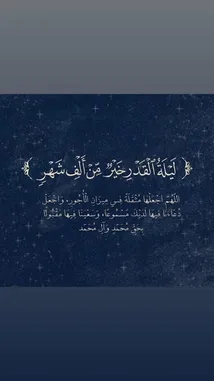 ﴿ لَيْلَةُ الْقَدْرِ خَيْرٌ مِّنْ أَلْفِ شَهْرٍ ﴾
اللَّهُمَّ اجْعَلْهَا مُثْقَلَةً فِي مِيزَانِ الْأُجُورِ، وَاجْعَلْ
دُعَاءَنَا فِيهَا لَدَيْكَ مَسْمُوعًا، وَسَعْيَنَا فِيهَا مَقْبُولًا
بِحَقِّ مُحَمَّدٍ وَآلِ مُحَمَّد